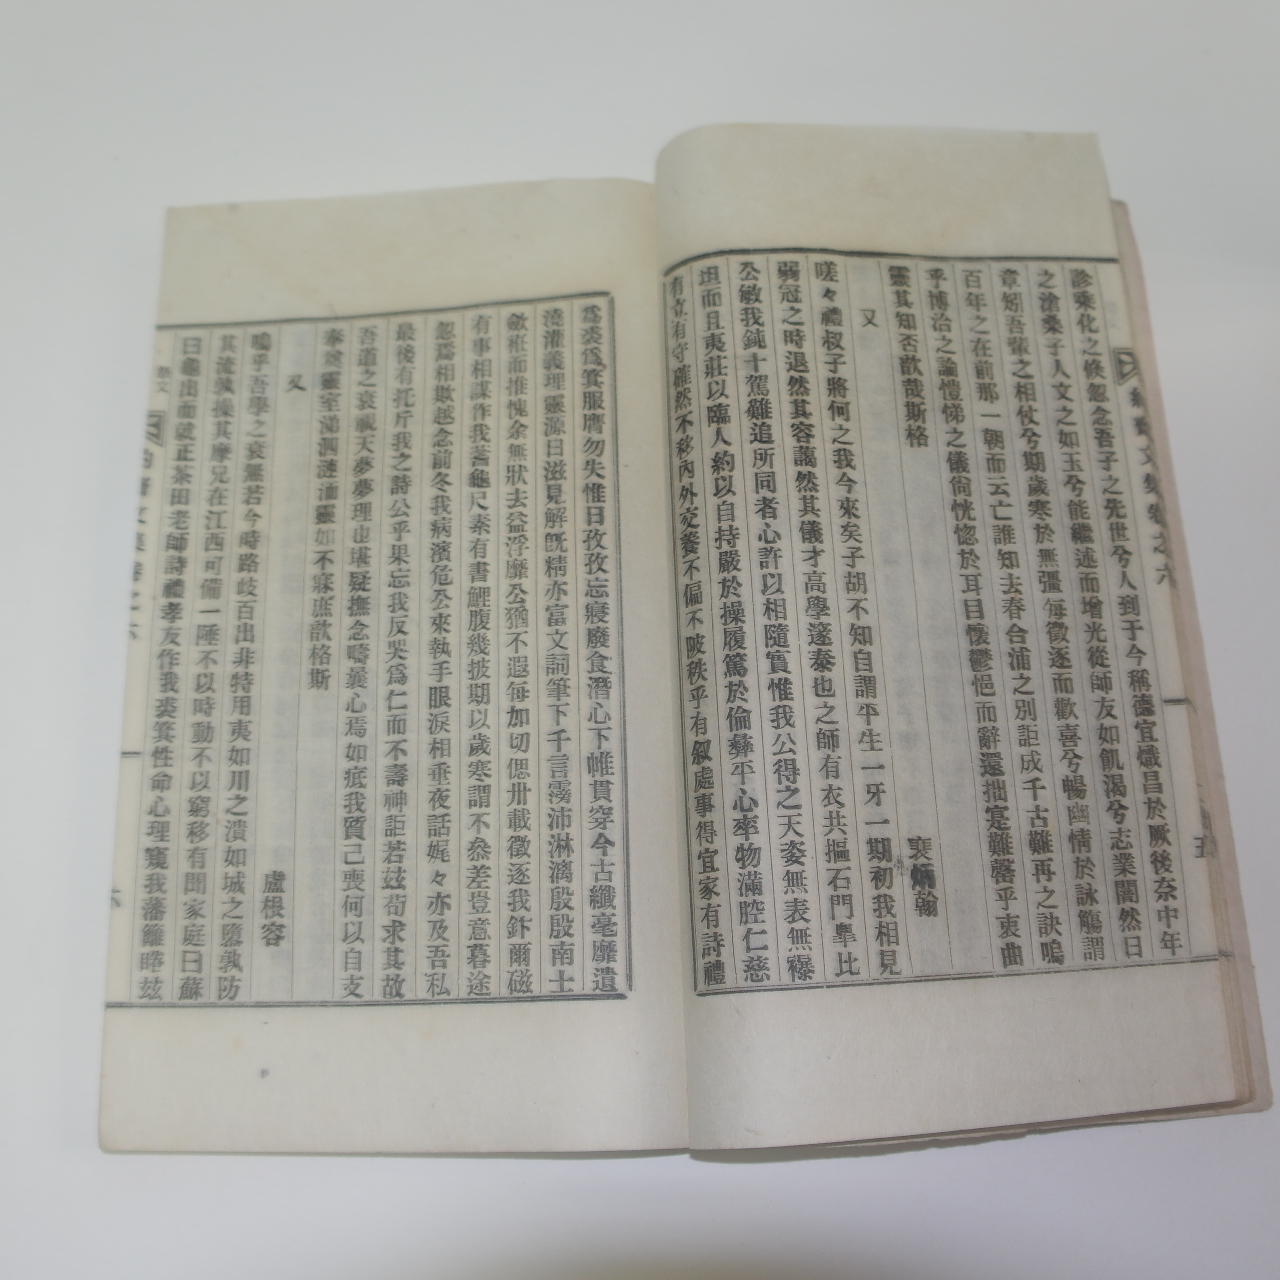 診乘化之倏忽念吾子之先世兮人到于今稱德宜熾昌於厥後奈中年
之滄桑子人文之如玉兮能繼述而增光從師友如飢渴兮志業闇然日
章矧吾輩之相仗兮期歲寒於無彊每徵逐而歡喜兮暢幽情於詠觴謂
百年之在前那一朝而云亡誰知去春合浦之別詎成千古難再之訣嗚
乎博洽之論愷悌之儀尙恍惚於耳目懷鬱悒而辭還拙寔難罄乎衷曲
靈其知否歆哉斯格
又 裵炳翰
嗟々禮叔子將何之我今來矣子胡不知自謂平生一牙一期初我相見
弱冠之時退然其容藹然其儀才高學邃泰也之師有衣共摳石門皐比
公敏我鈍十駕難追所同者心許以相隨實惟我公得之天姿無表無襮
坦而且夷莊以臨人約以自持嚴於操履篤於倫彝平心率物滿腔仁慈
有立有守確然不移內外交養不偏不陂秩乎有叙處事得宜家有詩禮
爲裘爲箕服膺勿失惟日孜孜忘寢廢食潛心下帷貫穿今古纖毫靡遺
澆灌義理靈源日滋見解旣精亦富文詞筆下千言霧沛淋漓殷殷南士
斂衽而推愧余無狀去益浮靡公猶不遐每加切偲卅載徵逐我釺爾磁
有事相謀作我蓍龜尺素有書鯉腹幾披期以歲寒謂不叅差豈意暮途
忽爲相欺越念前冬我病濱危公來執手眼淚相垂夜話娓々亦及吾私
最後有托斤我之詩公乎果忘我反哭爲仁而不壽神詎若玆苟求其故
吾道之衰視天夢夢理也堪疑撫念疇曩心焉如疷我質已喪何以自支
奉奠靈室涕泗漣洏靈如不寐庶歆格斯
又 盧根容
嗚乎吾學之衰無若今時路歧百出非特用夷如川之潰如城之隳孰防
其流孰操其麾兄在江西可備一陲不以時動不以窮移有聞家庭曰蘇
曰龜出而就正茶田老師詩禮孝友作我裘箕性命心理窺我藩籬睠玆